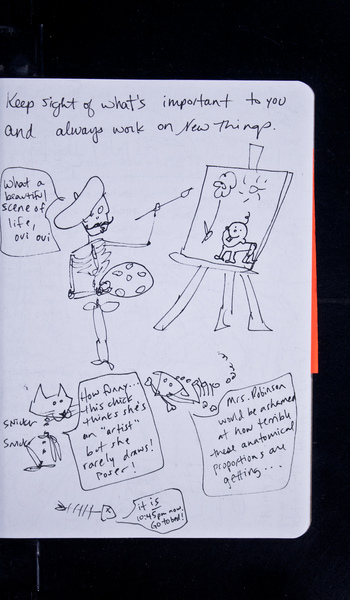 Keep sight of what's important to you
and always work on New Things.
What a
beautiful
scene of
life,
oui oui
Snicker
Snicker
How funny...
this chick
thinks she's
an "artist"
but she
rarely draws!
Poser!
Mrs. Robinson
would be ashamed
at how terrible
these anatomical
proportions are
getting...
it is
10:45pm now.
Go to bed!